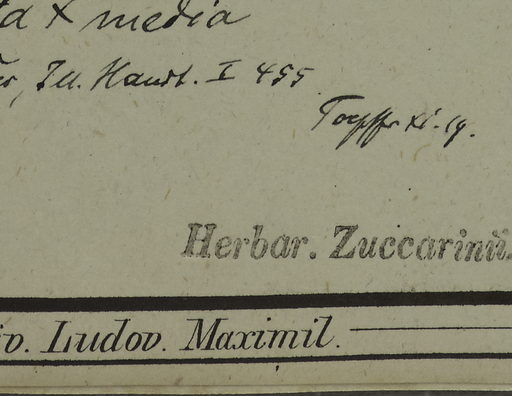 × media
Ill. Handb. I 455
Toepffer XI. 19.
Herbar. Zuccarinii.
iv. Ludov. Maximil.